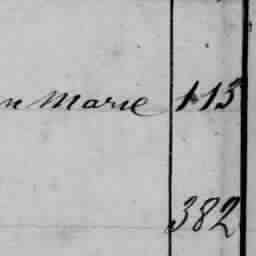 n Marie 113
382